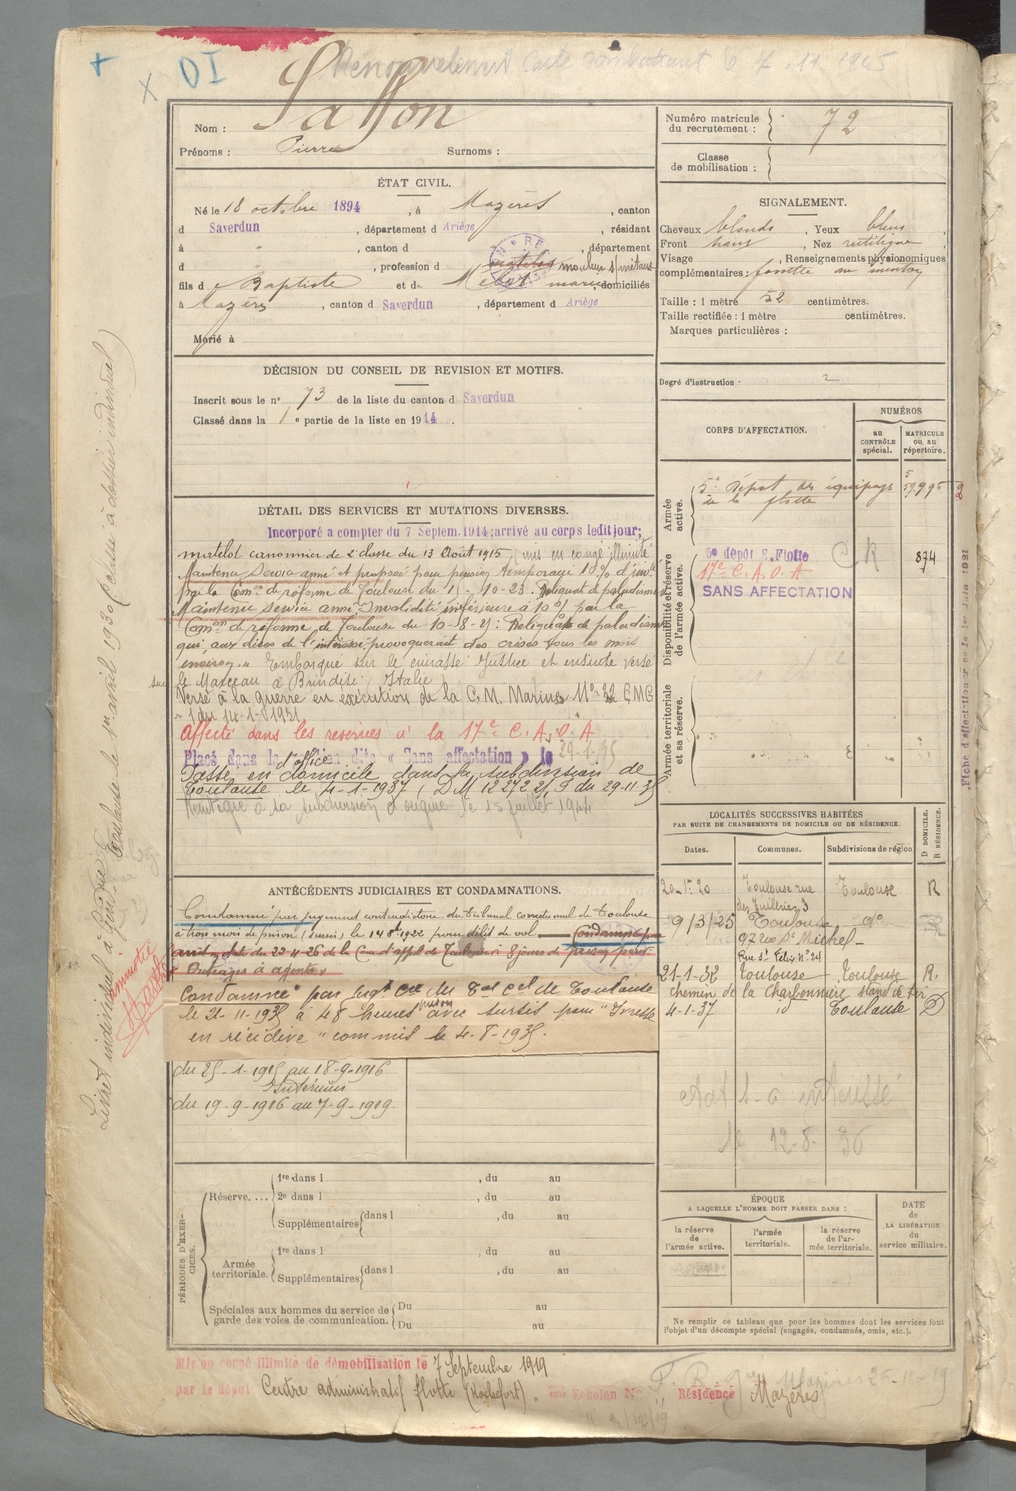 + OI
Renouvellement Carte combattant le 7.11.1945
Nom :
Prénoms : Pierre Surnoms :
Numéro matricule du recrutement : 72
Classe de mobilisation :
ÉTAT CIVIL.
Né le 18 octobre 1894, à Mazères, canton
d Saverdun, département d Ariège, résidant
à " , canton d , département
d , profession d mouleur s/métaux
fils d e Baptiste et de marie domiciliés
à Mazères, canton d Saverdun, département d Ariège
Marié à
SIGNALEMENT.
Cheveux blonds, Yeux bleus
Front haut, Nez rectiligne
Visage , Renseignements physionomiques
complémentaires : fossette au menton
Taille : 1 mètre 52 centimètres.
Taille rectifiée : 1 mètre centimètres.
Marques particulières :
Degré d'instruction : 2
DÉCISION DU CONSEIL DE REVISION ET MOTIFS.
Inscrit sous le n° 73 de la liste du canton d Saverdun
Classé dans la 1e partie de la liste en 1914.
DÉTAIL DES SERVICES ET MUTATIONS DIVERSES.
Incorporé a compter du 7 Septem. 1914; arrivé au corps ledit jour;
matelot canonnier de 2e classe du 13 Août 1915, mis en congé illimité
Maintenu Service armé et proposé pour pension temporaire 10% d'inv
par la Com. de réforme de Toulouse du 15-10-23. Reliquat de paludisme
Maintenu Service armé Invalidité inférieure à 10% par la
Com. de réforme de Toulouse du 10-18-21: Reliquats de paludisme
qui, aux dires de l'intéressé, provoquerait des crises tous les mois
environ. Embarqué sur le cuirassé Justice et ensuite versé
sur le Marceau à Brindisi, Italie
Versé à la guerre en exécution de la C.M. Marine N° 32 EMG
- 1 du 14-1-1931
Affecté dans les réserves à la 17e C.A.O.A
Placé dans la position dite « Sans affectation » le 29-1-35
d'office
Passé en domicile dans la subdivision de
Toulouse le 4-1-1937 (DM 12272 2/1 S du 29.11.35
Réintégré à la subdivision d'origine le 15 juillet 1944
CORPS D'AFFECTATION.
NUMÉROS
au CONTRÔLE spécial.
MATRICULE ou au répertoire.
Armée active.
5e Dépôt des équipages
de la flotte
Disponibilité et réserve de l'armée active.
5e dépôt E. Flotte CR 874
17e C.A.O.A
SANS AFFECTATION
Armée territoriale et sa réserve.
LOCALITÉS SUCCESSIVES HABITÉES
PAR SUITE DE CHANGEMENTS DE DOMICILE OU DE RÉSIDENCE.
Dates. Communes. Subdivisions de région D DOMICILE. R RÉSIDENCE.
20-1-20 Toulouse rue Toulouse R
des Tuileries 3
9/3/25 Toulouse do
97 rue St Michel
Rue St Félix n° 24
21-1-32 Toulouse Toulouse R.
chemin de la Charbonnière stand de tir
4-1-37 id Toulouse D
12-8-36
ANTÉCÉDENTS JUDICIAIRES ET CONDAMNATIONS.
Condamné par jugement contradictoire du Tribunal correctionnel de Toulouse
à trois mois de prison (sursis) le 14 8bre 1922 pour délit de vol Condamné par
arrêt du 22-4-26 de la Cour d'appel de Toulouse à 8 jours de prison pour
« Outrages à agents »
Condamné par Jugt Cre du Tal Cel de Toulouse
le 21-11-1935 à 48 heures prison avec sursis pour "Ivresse
en récidive" commis le 4-8-1935.
du 25-1-1915 au 18-9-1916
Intérieur
du 19-9-1916 au 7-9-1919
PÉRIODES D'EXERCICES.
Réserve....
1re dans l , du au
2e dans l , du au
Supplémentaires dans l , du au
Armée territoriale.
1re dans l , du au
Supplémentaires dans l , du au
Spéciales aux hommes du service de garde des voies de communication.
Du au
Du au
ÉPOQUE
A LAQUELLE L'HOMME DOIT PASSER DANS :
la réserve de l'armée active.
l'armée territoriale.
la réserve de l'armée territoriale.
DATE de LA LIBÉRATION du service militaire.
Ne remplir ce tableau que pour les hommes dont les services font
l'objet d'un décompte spécial (engagés, condamnés, omis, etc.).
Mis en congé illimité de démobilisation le 7 Septembre 1919
par le dépôt Centre administratif flotte (Rochefort). ème Echelon N° Résidence Mazères
Mazères 26-11-19
Amnistié
Fiche d'affectation